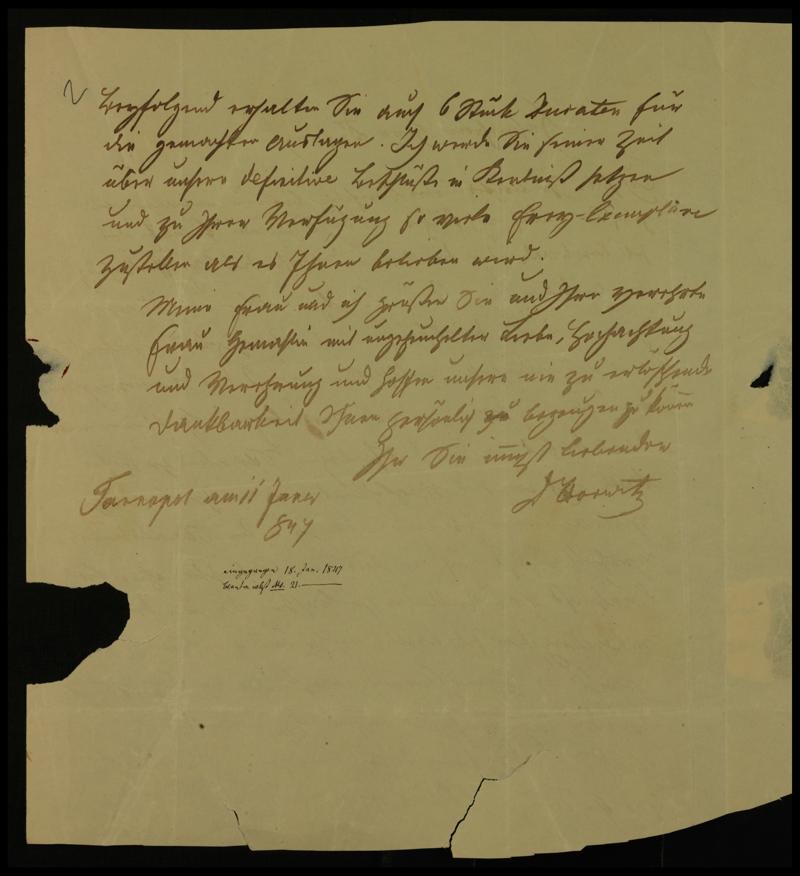 Beyfolgend erhalten Sie auch 6 Stück Ducaten für
die gemachten Auslagen. Ich werde Sie seiner Zeit
über unsere definitive Beschlüße in Kentniß setzen
und zu Ihrer Verfügung so viele Frey-Exemplare
zustellen als es Ihnen belieben wird.
Meine Frau und ich grüßen Sie und Ihre verehrte
Frau Gemahlin mit ungeheuchelter Liebe, Hochachtung
und Verehrung und hoffen unsere nie zu erlöschende
Dankbarkeit Ihnen persönlich zu bezeugen zu können
Ihr Sie innigst liebender
Tarnopol am 11 Janer D Horwitz
847
eingegangen 18. Jan. 1847
21.